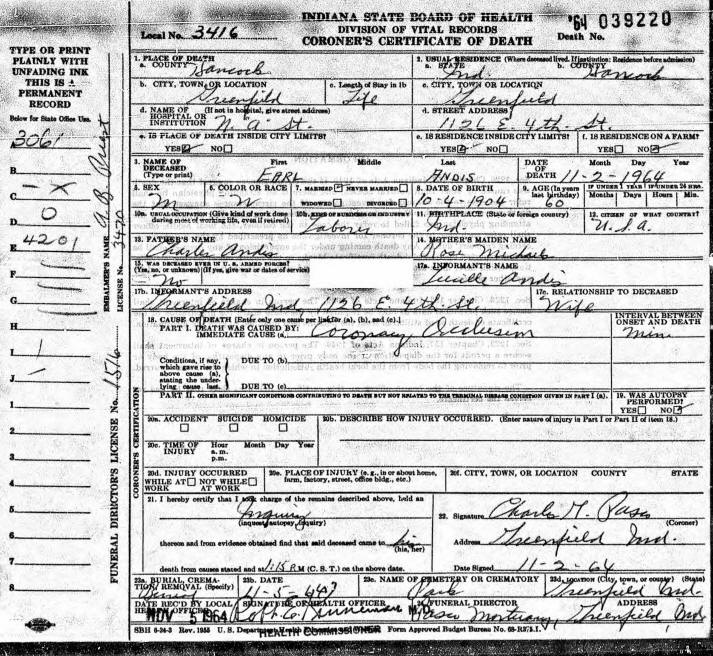 INDIANA STATE BOARD OF HEALTH
DIVISION OF VITAL RECORDS
CORONER'S CERTIFICATE OF DEATH
Local No. 3416
'64 039220
Death No.
TYPE OR PRINT
PLAINLY WITH
UNFADING INK
THIS IS A
PERMANENT
RECORD
Below for State Office Use.
3061
B.
C. - X
D. 0
E. 4201
F.
G.
H.
I. 1
J. 1
1.
2.
3.
4.
5.
6.
7.
8.
EMBALMER'S NAME A. B. Priest
LICENSE No. 3470
FUNERAL DIRECTOR'S LICENSE No. 1516
CORONER'S CERTIFICATION
1. PLACE OF DEATH
a. COUNTY Hancock
2. USUAL RESIDENCE (Where deceased lived. If institution: Residence before admission)
a. STATE Ind. b. COUNTY Hancock
b. CITY, TOWN, OR LOCATION Greenfield
c. Length of Stay in 1b Life
c. CITY, TOWN, OR LOCATION Greenfield
d. NAME OF HOSPITAL OR INSTITUTION (If not in hospital, give street address) N. A. St.
d. STREET ADDRESS 1126 E. 4th. St.
e. IS PLACE OF DEATH INSIDE CITY LIMITS? YES NO
e. IS RESIDENCE INSIDE CITY LIMITS? YES NO
f. IS RESIDENCE ON A FARM? YES NO
3. NAME OF DECEASED (Type or print) First EARL Middle Last ANDIS
DATE OF DEATH Month Day Year 11-2-1964
5. SEX M
6. COLOR OR RACE W
7. MARRIED NEVER MARRIED WIDOWED DIVORCED
8. DATE OF BIRTH 10-4-1904
9. AGE (In years last birthday) 60
IF UNDER 1 YEAR Months Days
IF UNDER 24 HRS. Hours Min.
10a. USUAL OCCUPATION (Give kind of work done during most of working life, even if retired)
10b. KIND OF BUSINESS OR INDUSTRY Laborer
11. BIRTHPLACE (State or foreign country) Ind.
12. CITIZEN OF WHAT COUNTRY? U.S.A.
13. FATHER'S NAME Charles Andis
14. MOTHER'S MAIDEN NAME Rose Michaels
15. WAS DECEASED EVER IN U. S. ARMED FORCES? (Yes, no, or unknown) (If yes, give war or dates of service) No
17a. INFORMANT'S NAME Lucille Andis
17b. INFORMANT'S ADDRESS Greenfield Ind, 1126 E 4th St.
17c. RELATIONSHIP TO DECEASED Wife
18. CAUSE OF DEATH [Enter only one cause per line for (a), (b), and (c).]
INTERVAL BETWEEN ONSET AND DEATH
PART I. DEATH WAS CAUSED BY:
IMMEDIATE CAUSE (a) Coronary Occlusion Min
Conditions, if any, which gave rise to above cause (a), stating the underlying cause last.
DUE TO (b)
DUE TO (c)
PART II. OTHER SIGNIFICANT CONDITIONS CONTRIBUTING TO DEATH BUT NOT RELATED TO THE TERMINAL DISEASE CONDITION GIVEN IN PART I (a).
19. WAS AUTOPSY PERFORMED? YES NO
20a. ACCIDENT SUICIDE HOMICIDE
20b. DESCRIBE HOW INJURY OCCURRED. (Enter nature of injury in Part I or Part II of item 18.)
20c. TIME OF INJURY Hour a. m. p.m. Month Day Year
20d. INJURY OCCURRED WHILE AT WORK NOT WHILE AT WORK
20e. PLACE OF INJURY (e. g., in or about home, farm, factory, street, office bldg., etc.)
20f. CITY, TOWN, OR LOCATION COUNTY STATE
21. I hereby certify that I took charge of the remains described above, held an
Inquiry
(inquest, autopsy, inquiry)
thereon and from evidence obtained find that said deceased came to his
(his, her)
death from causes stated and at 1:15 P.M (C. S. T.) on the above date.
22. Signature Charles M. Pasco (Coroner)
Address Greenfield Ind.
Date Signed 11-2-64
23a. BURIAL, CREMATION, REMOVAL (Specify) Burial
23b. DATE 11-5-64
23c. NAME OF CEMETERY OR CREMATORY Park
23d. LOCATION (City, town, or county) (State) Greenfield Ind.
DATE REC'D BY LOCAL HEALTH OFFICER NOV 5 1964
SIGNATURE OF HEALTH OFFICER
M.D.
24. FUNERAL DIRECTOR Pasco Mortuary,
ADDRESS Greenfield Ind
HEALTH COMMISSIONER
SBH 6-24-3 Rev. 1955 U. S. Form Approved Budget Bureau No. 68-R375.1.